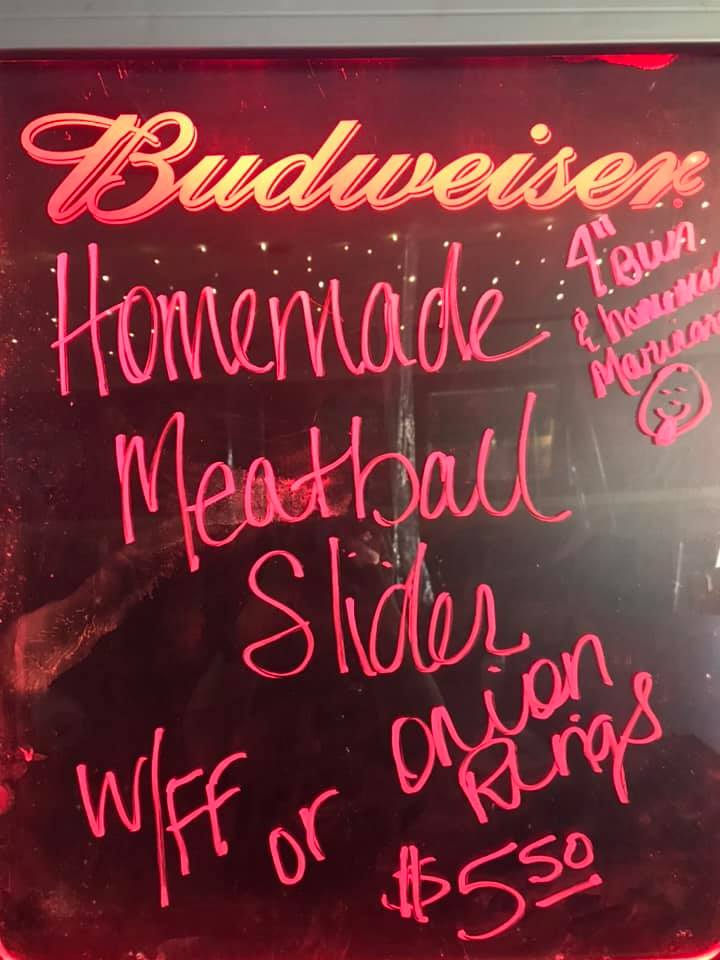 Budweiser
Homemade
4" Bun
& homema
Marinar
Meatball
Slider
W/FF or onion
Rings
$5.50